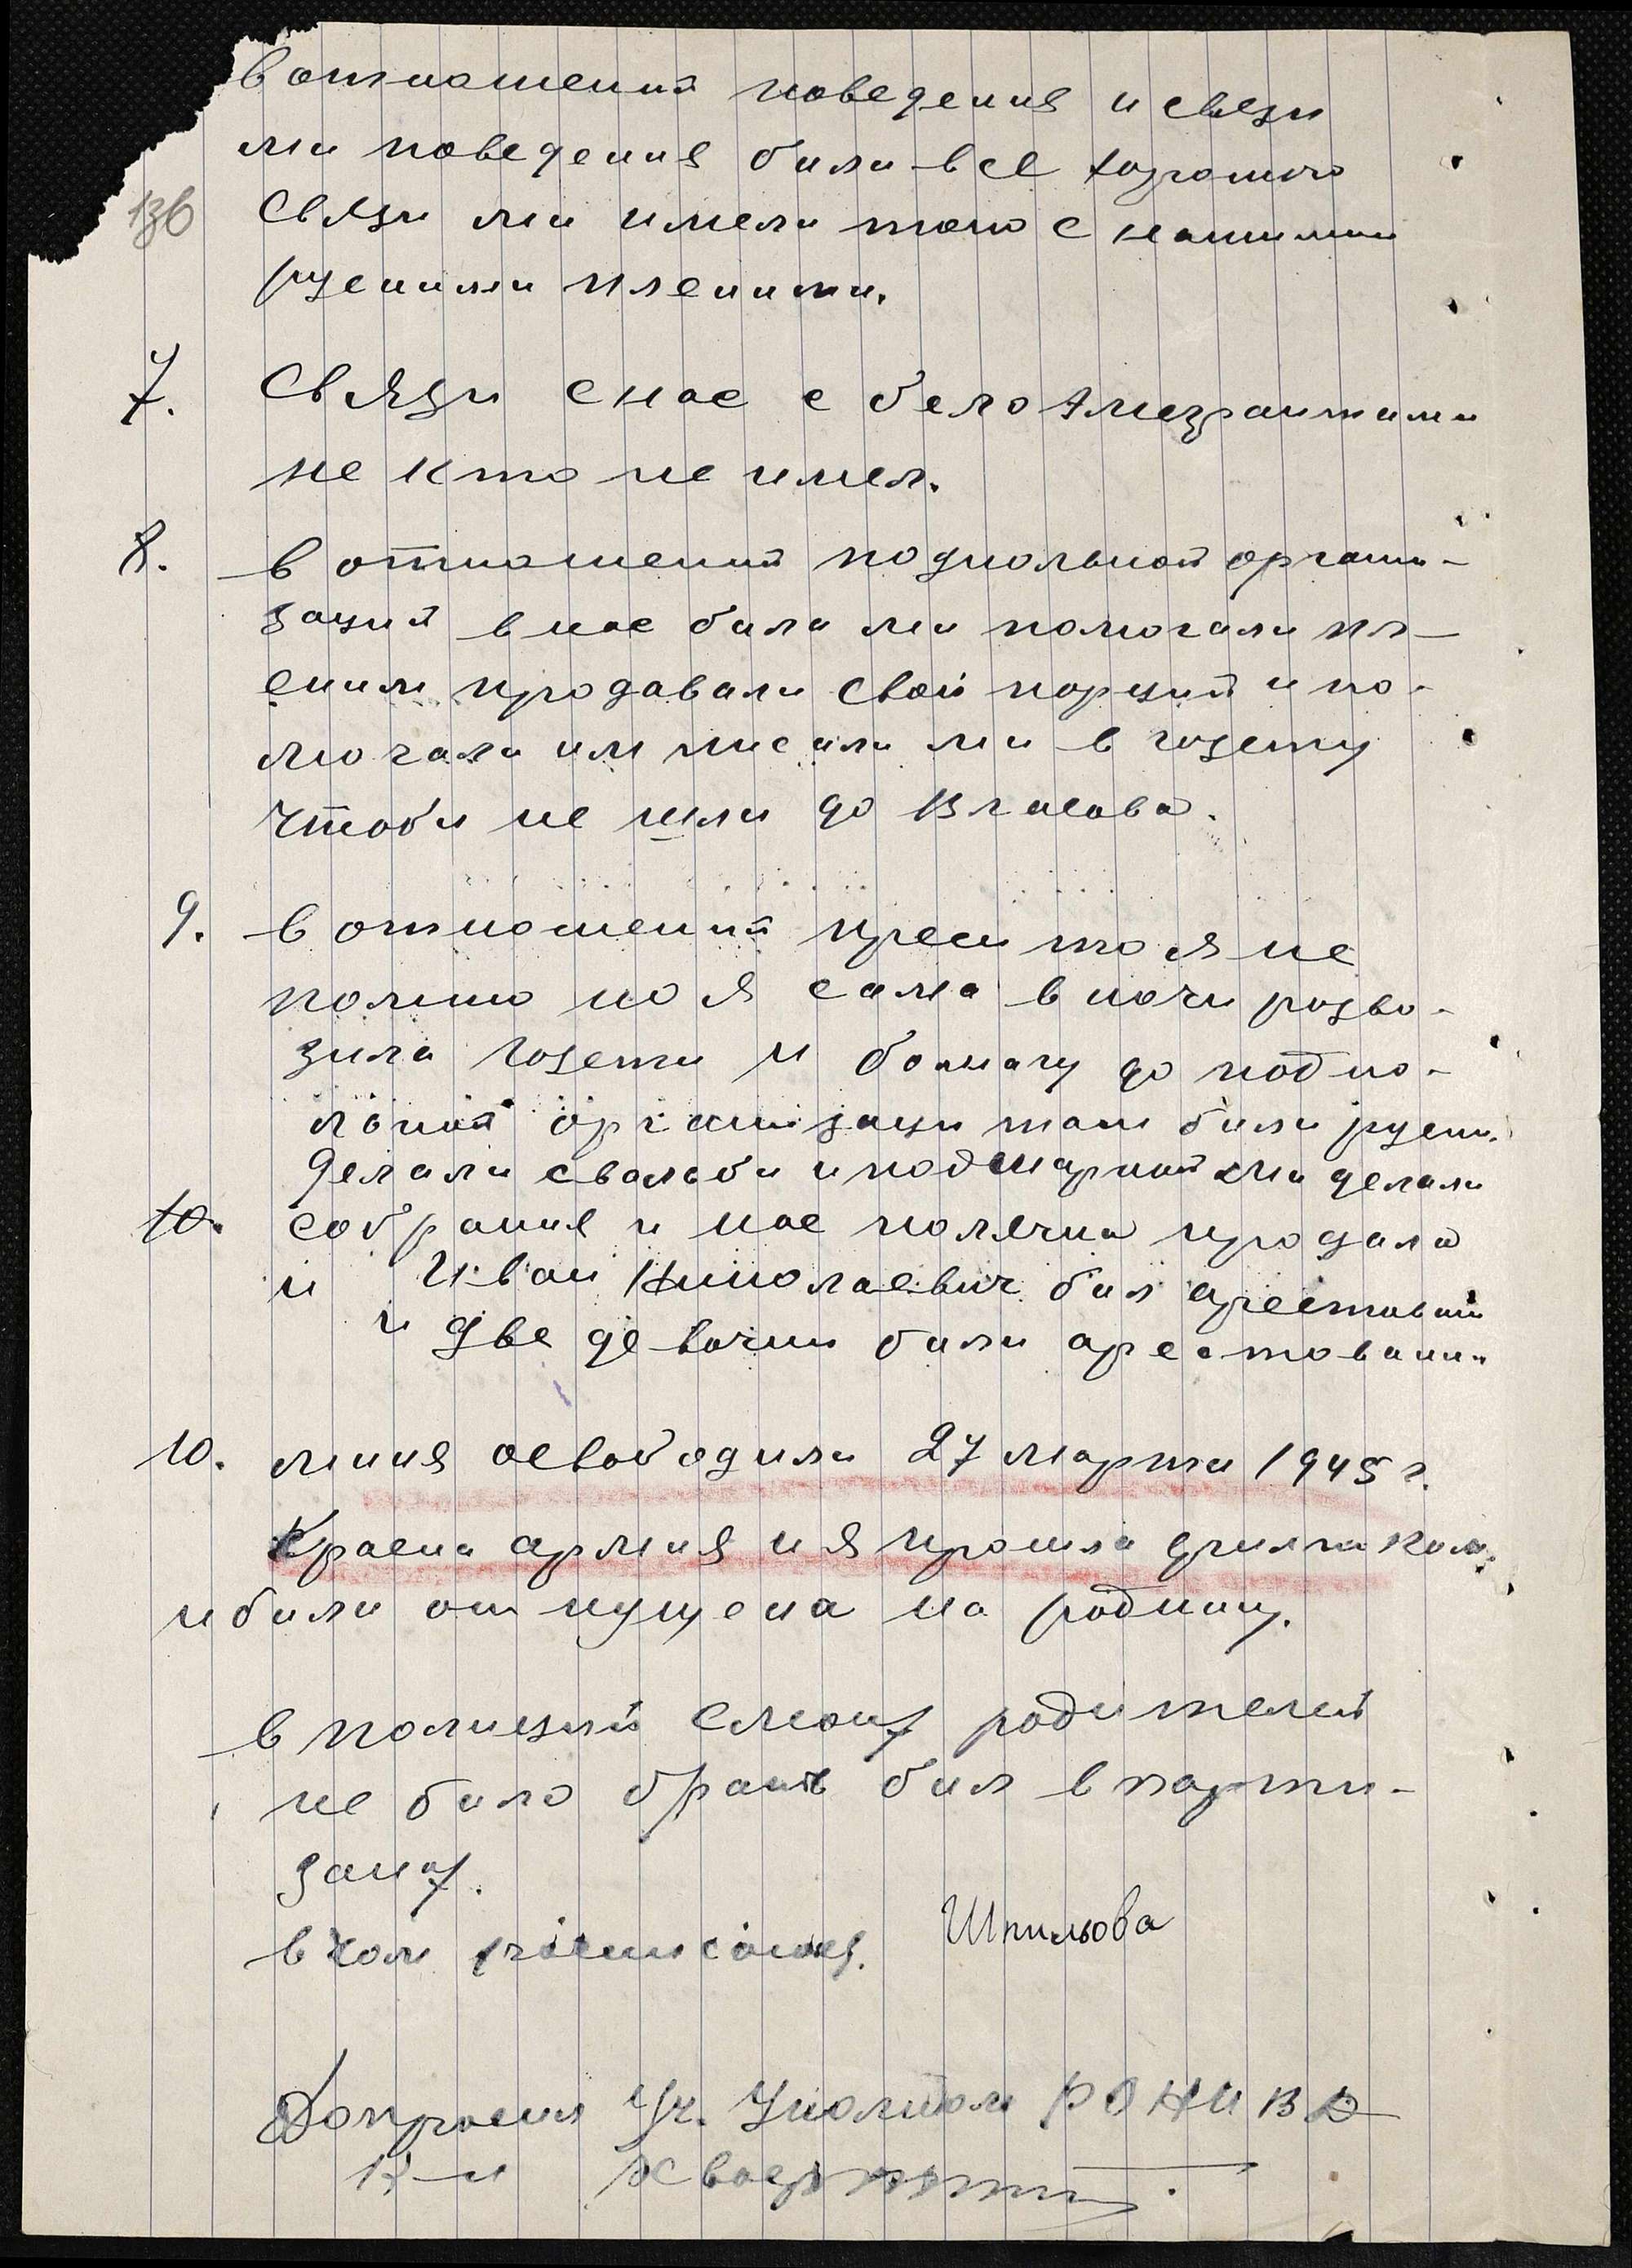 в отношений поведения и связи
ми поведения били все хорошого
136
Связи ми имели токо с нашими
рускими пленими.
7. Связи с нас с бело Амегрантами
не кто не имел.
8. в отношений поднольной органи-
заций в нас била ми помогали пл-
еним продавали свои порций и по-
могали им писали ми в газету
чтоби не шли до Власова.
9. в отношений преси то я не
помню но я сама в ночи розво-
зила газети и бомагу до подпо-
льной организаци там били руски.
делали свадьби и под маркай ми делали
10. собрания и нас полячка продала
и Иван Николаевич бил арестован
и две девочки били арестовани
10. миня освободили 27 марта 1945 г.
Красна армия и я прошла фильтра ком.
и били отпущена на родину.
в полиций с моих родителей
не било брать бил в парти-
занах.
в чом росписаюсь. Шпильова
Допросил Уч. Уполном РОНКВД